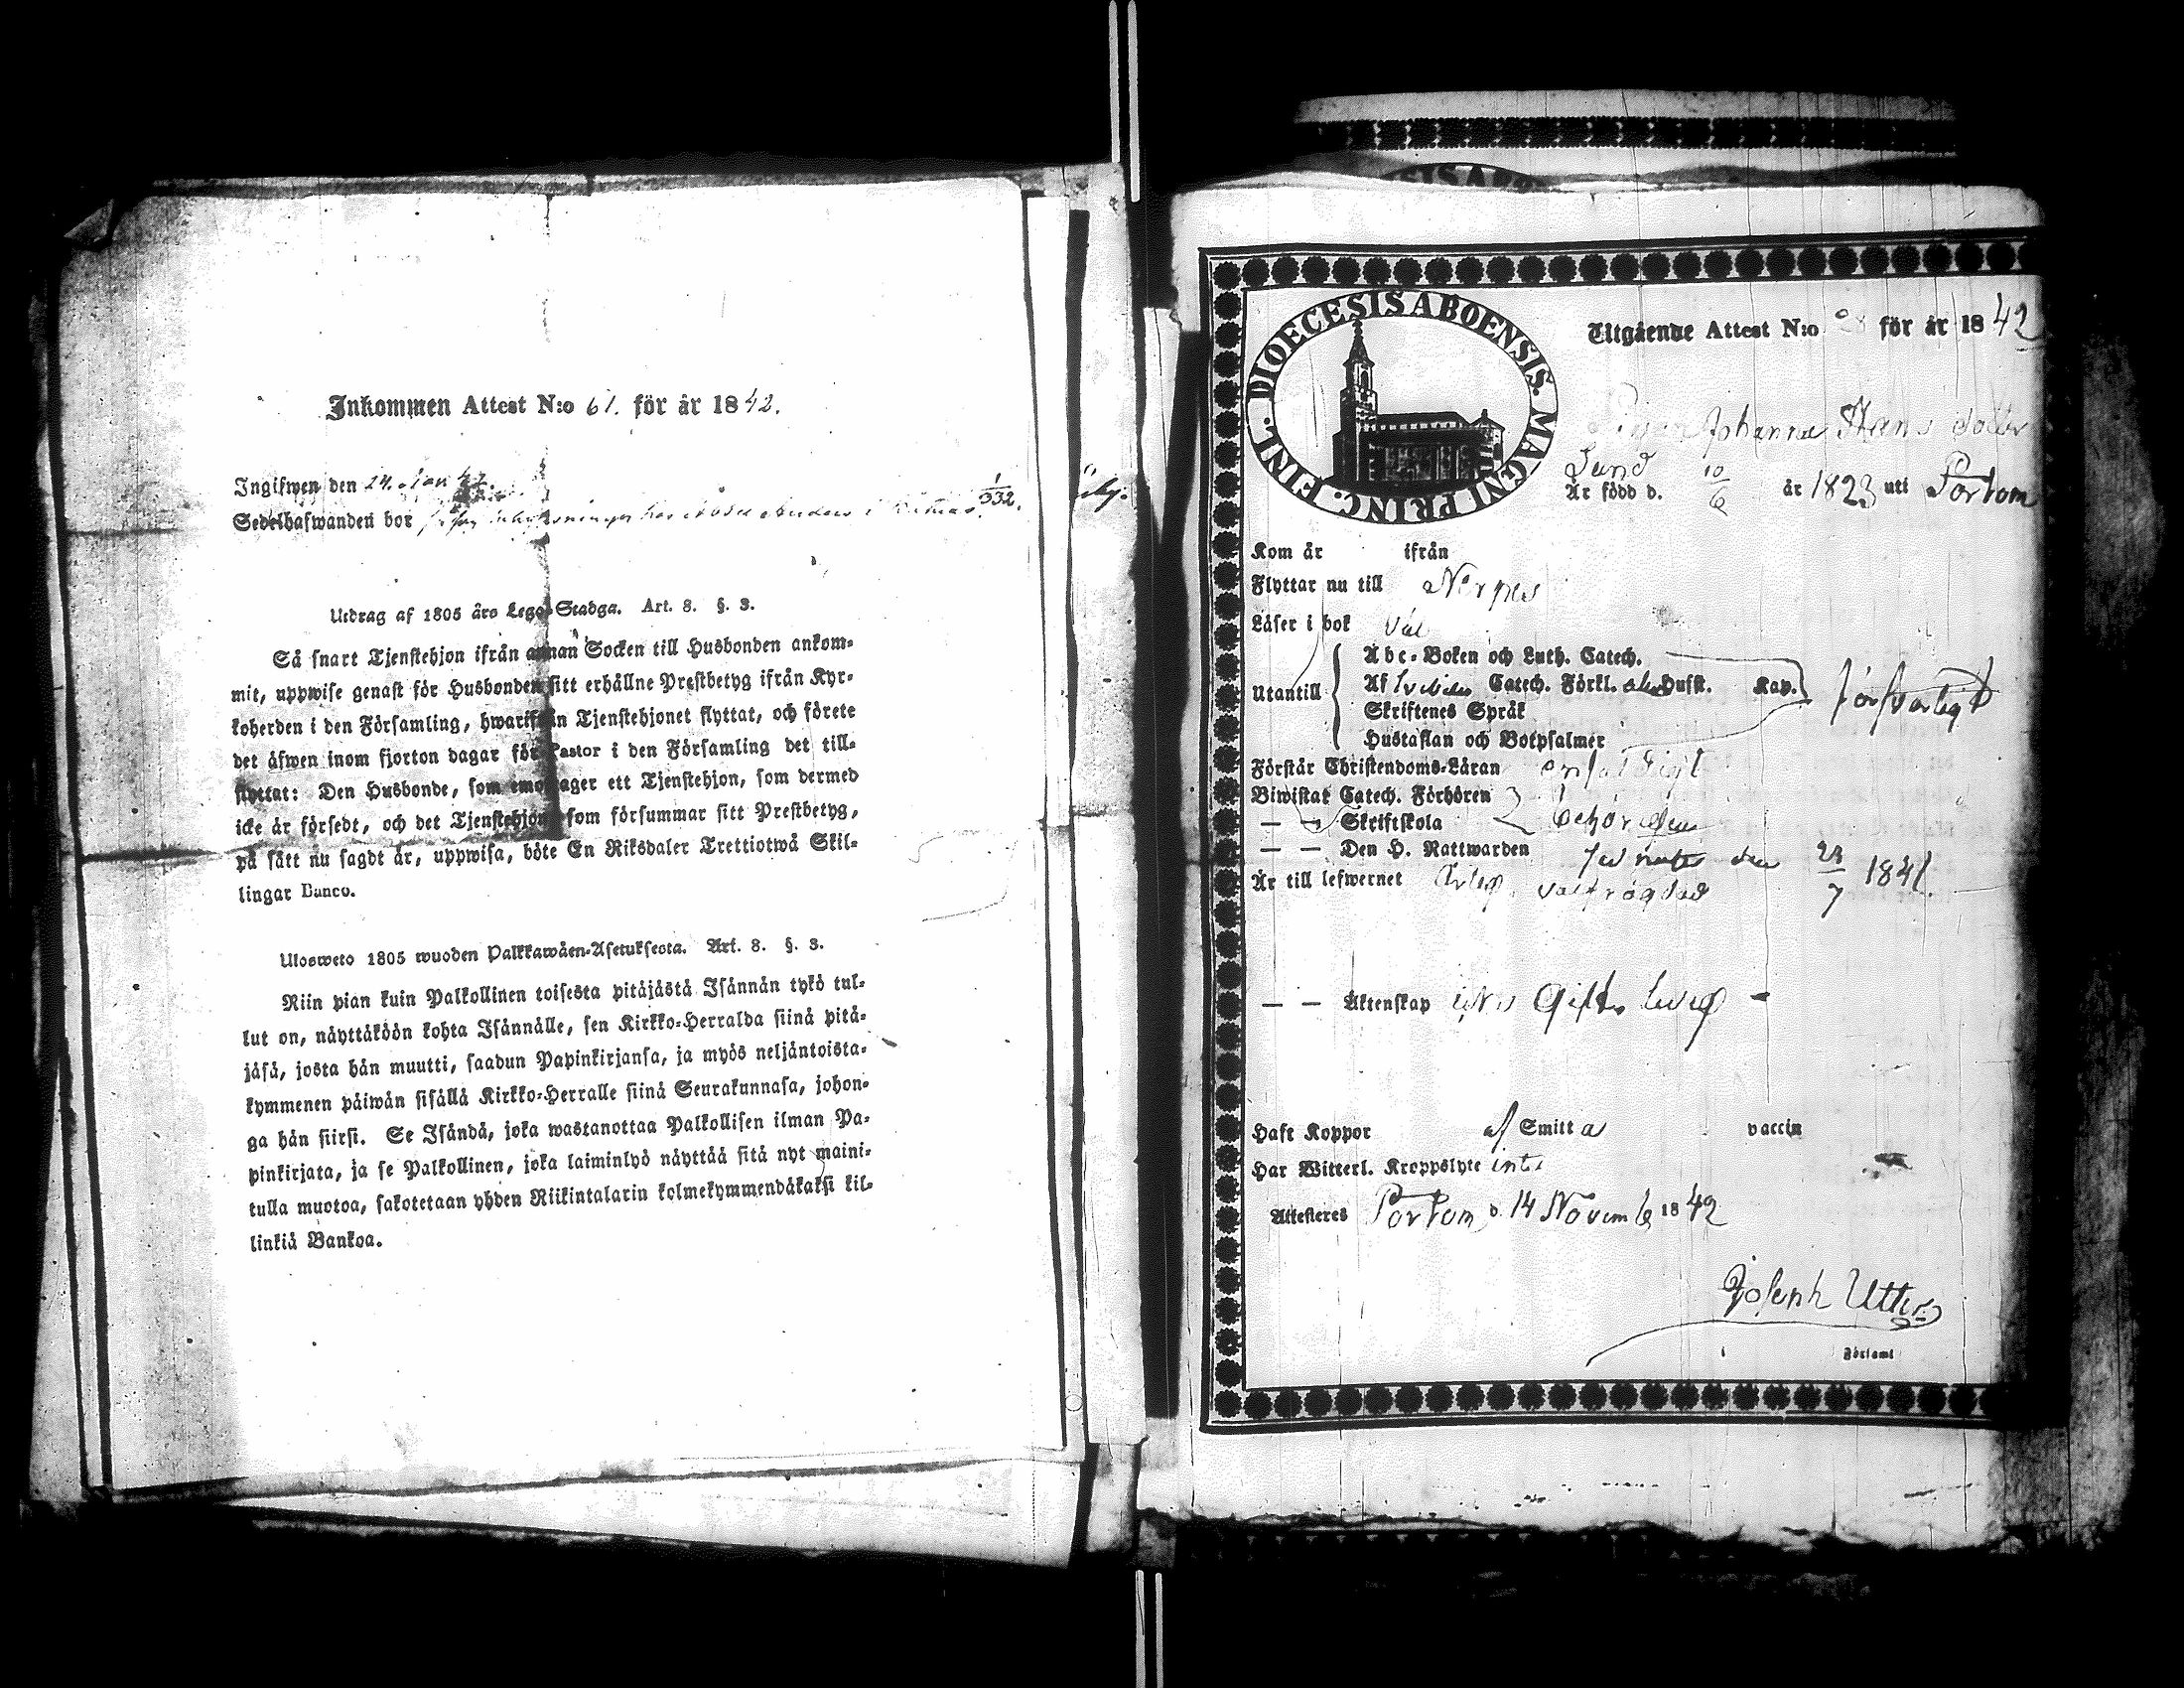 Inkommen Attest N:o 61. för år 1842.
Ingifwen den 24. 
Sedelhafwanden bor
Utdrag af 1805 års Lego-Stadga. Art. 8. §. 3.
Så snart Tjenstehjon ifrån annan Socken till Husbonden ankom-
mit, uppwise genast för Husbonden sitt erhållne Prestbetyg ifrån Kyr-
koherden i den Församling, hwarifrån Tjenstehjonet flyttat, och förete
det äfwen inom fjorton dagar för Pastor i den Församling det till-
flyttat: Den Husbonde, som emottager ett Tjenstehjon, som dermed
icke är försedt, och det Tjenstehjon som försummar sitt Prestbetyg,
på sätt nu sagdt är, uppwisa, böte En Riksdaler Trettiotwå Skil-
lingar Banco.
Ulosweto 1805 wuoden Palkkawäen-Asetuksesta. Art. 8. §. 3.
Niin pian kuin Palkollinen toisesta pitäjästä Isännän tykö tul-
lut on, näyttäköön kohta Isännälle, sen Kirkko-Herralda siinä pitä-
jäsä, josta hän muutti, saadun Papinkirjansa, ja myös neljäntoista-
kymmenen päiwän sisällä Kirkko-Herralle siinä Seurakunnasa, johon-
ga hän siirsi. Se Isändä, joka wastanottaa Palkollisen ilman Pa-
pinkirjata, ja se Palkollinen, joka laiminlyö näyttää sitä nyt maini-
tulla muotoa, sakotetaan yhden Riikintalarin kolmekymmendäkaksi kil-
linkiä Bankoa.
DIOECESIS ABOENSIS. MAGNI PRINC. FINL.
Utgående Attest N:o 28 för år 1842
Pigan Johanna Hans dotter
Lund
Är född d. 10/6 år 1823 uti Portom
Kom år ifrån
Flyttar nu till Nerpes
Läser i bok väl
Utantill
Abc-Boken och Luth. Catech.
Af Catech. Förkl. Hufst. Kap.
Skriftenes Språk
Hustaflan och Botpsalmer
försvarligt
Förstår Christendoms-Läran enfaldigt
Biwistat Catech. Förhören
— — Skriftskola behörigen
— — Den H. Nattwarden den 23/7 1842
Är till lefwernet Ärlig, välfrägdad
— — Äktenskap Gifto ledig
Haft Koppor af Smitta vaccin
Har Witterl. Kroppslyte inte
Attesteres Portom d. 14 Novemb 1842
Joseph
Församl